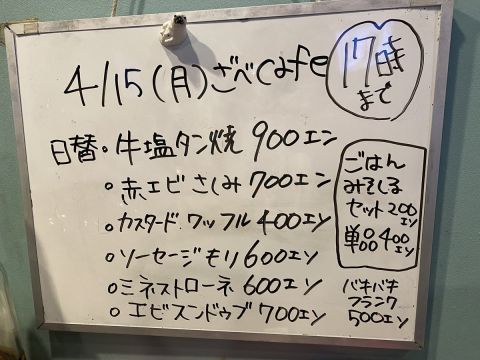 4/15(月)ざべcafe
17時
まで
日替・牛塩タン焼 900エン
。赤エビさしみ 700エン
。カスタードワッフル 400エン
。ソーセージモリ 600エン
。ミネストローネ 600エン
。エビスンドゥブ 700エン
ごはん
みそしる
セット200
エン
単品400
エン
バキバキ
フランク
500エン